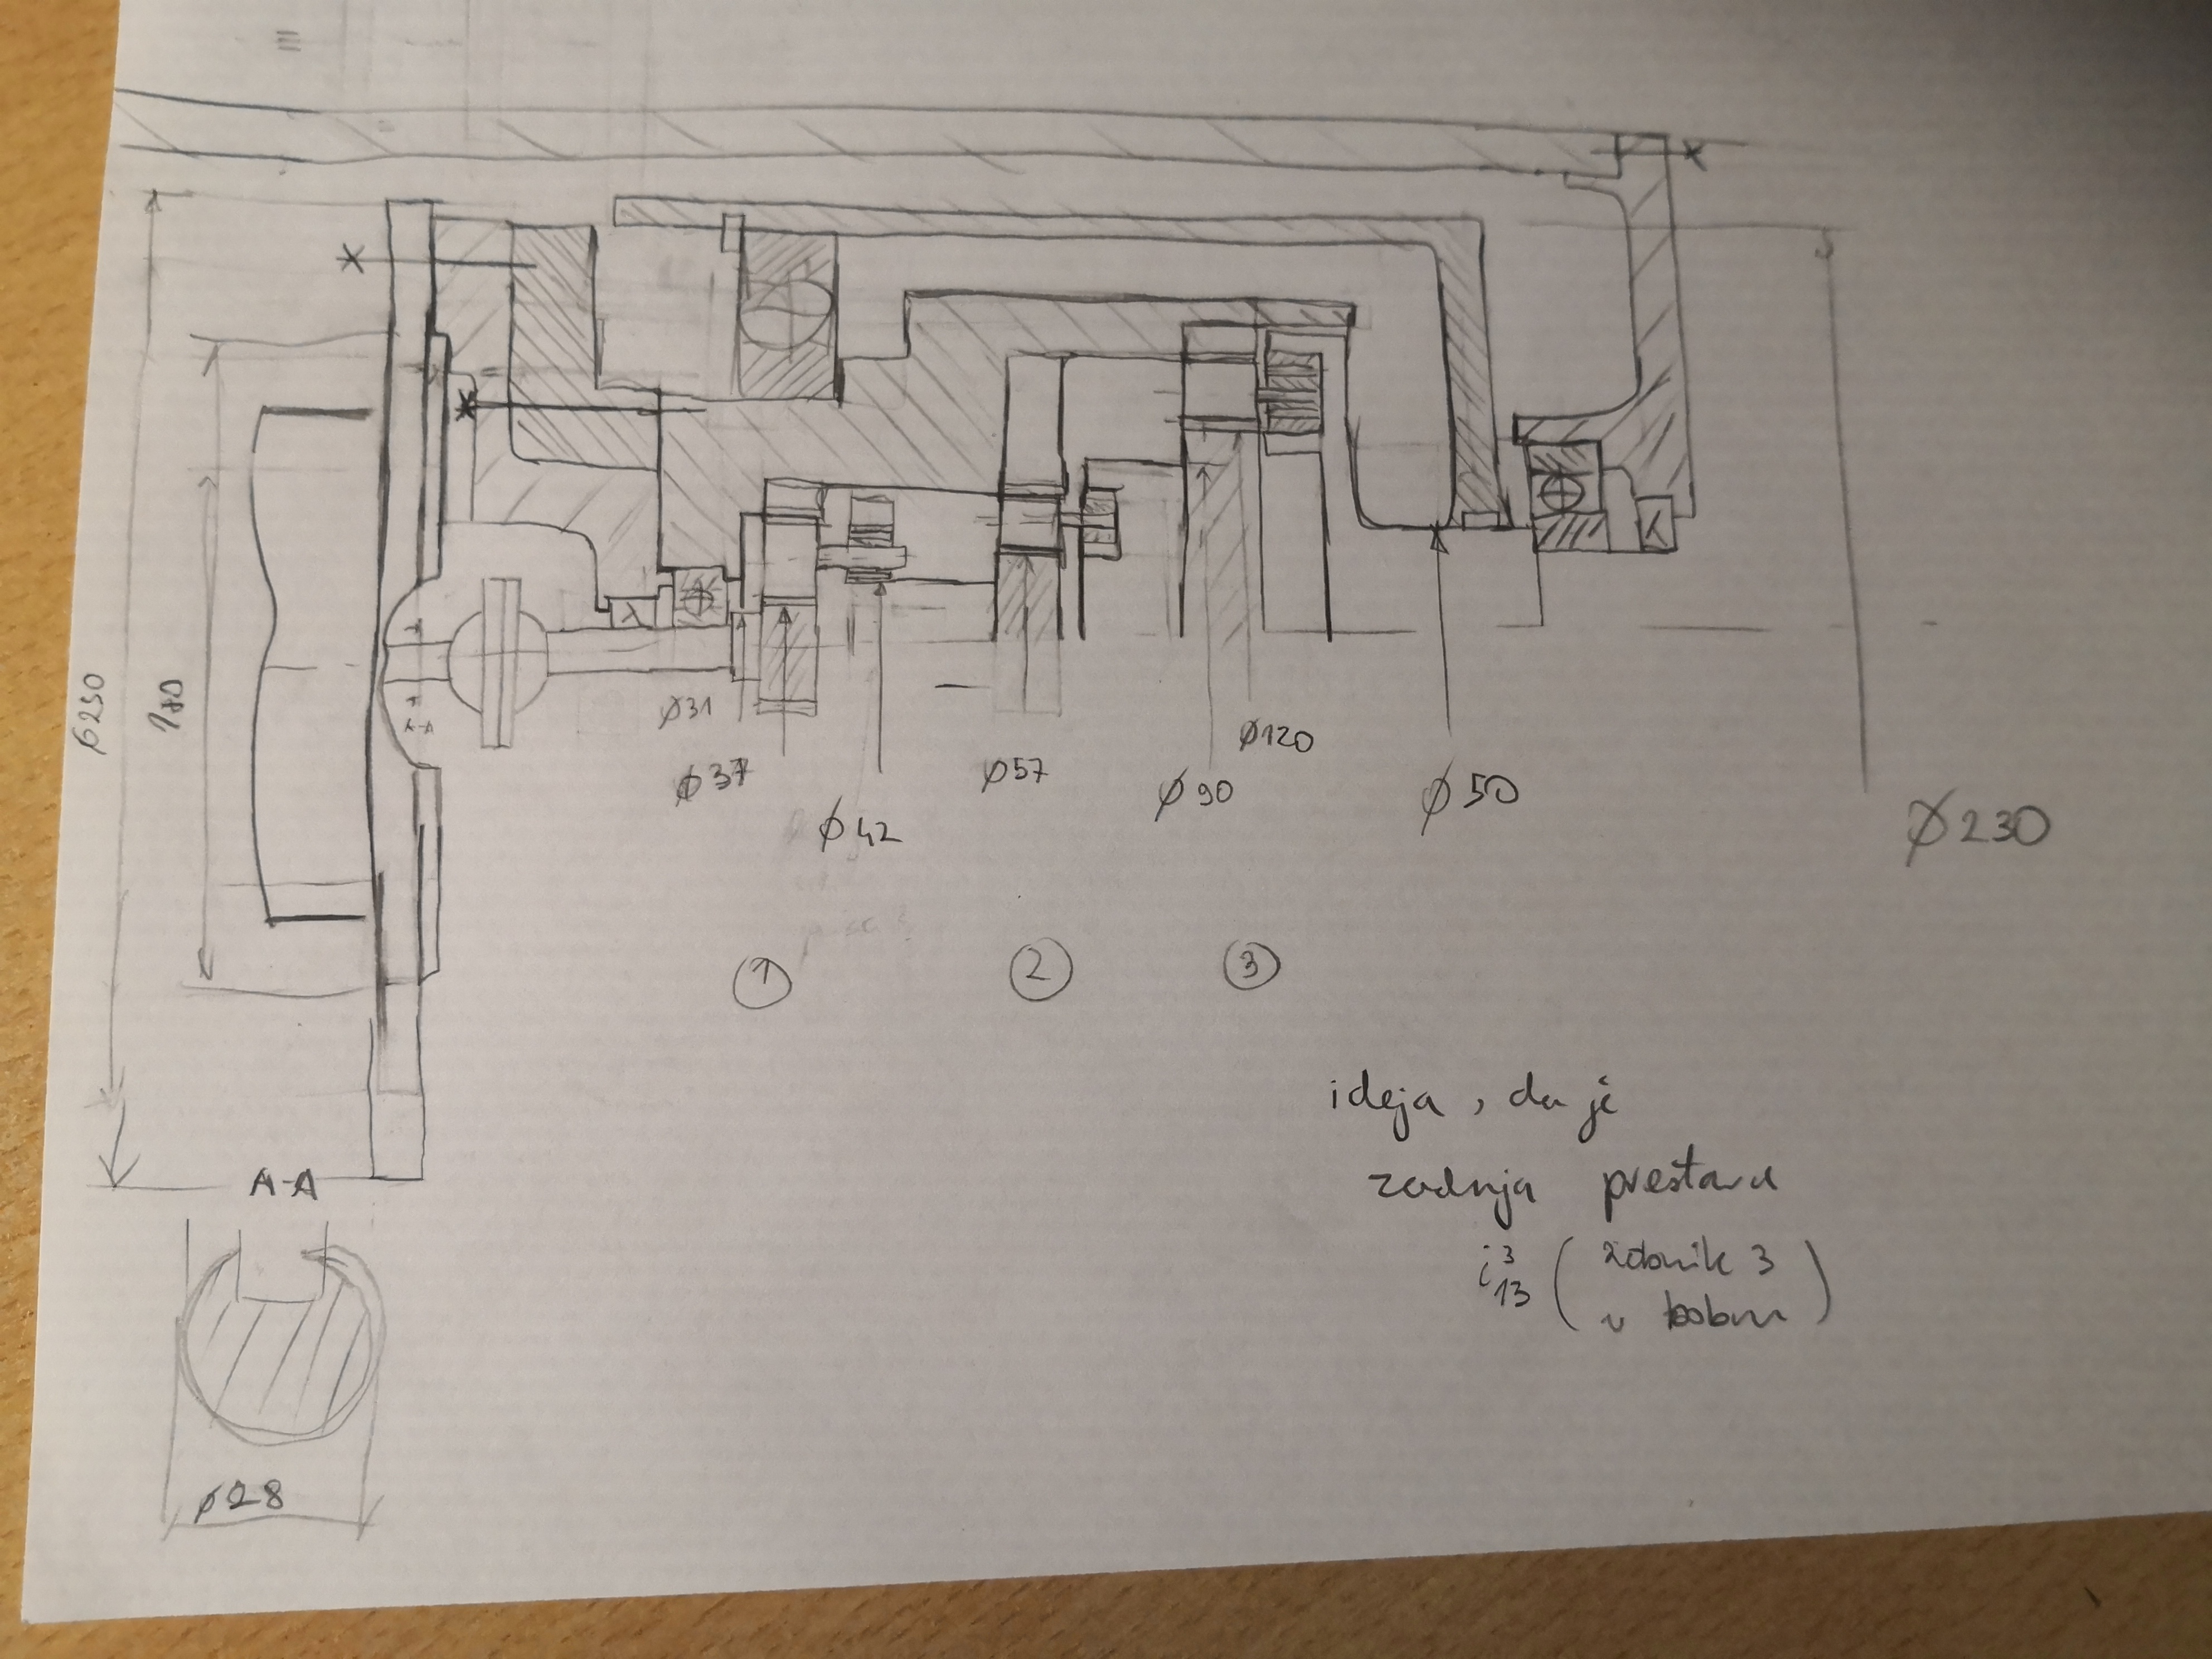 ϕ250
180
A-A
ϕ31
ϕ37
ϕ42
ϕ57
ϕ90
ϕ120
ϕ50
ϕ230
1
2
3
A-A
ϕ28
ideja, da je
zadnja prestava
i³₁₃ (zobnik 3
v bobnu)